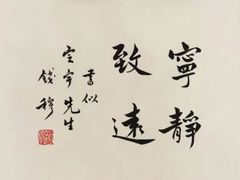 寧靜
致遠
書似
空宇先生
錢穆